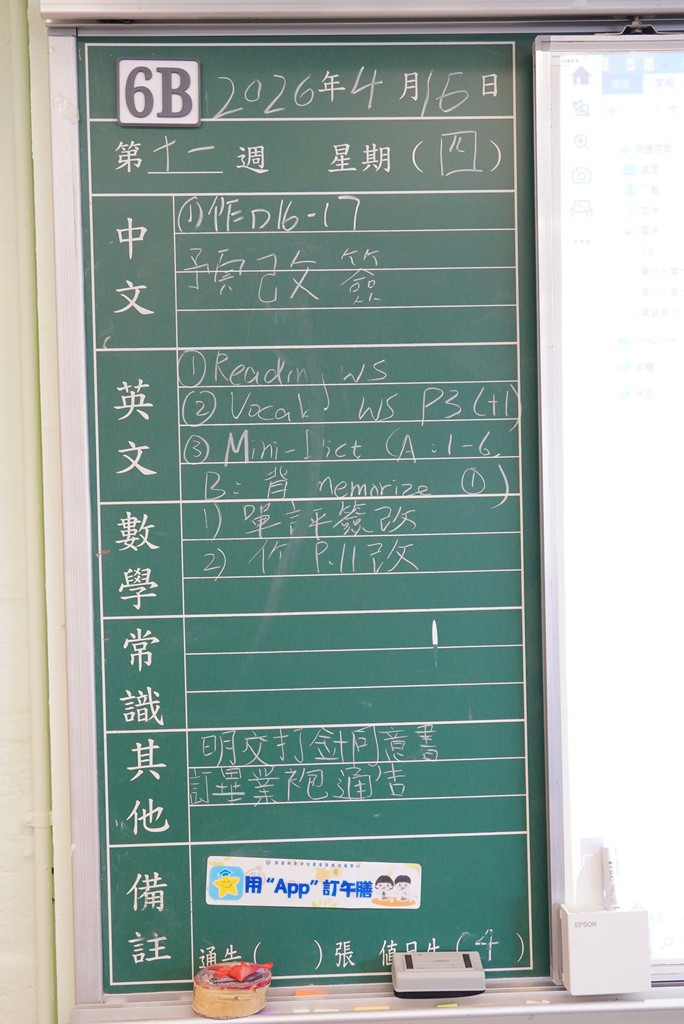 6B 2026年4月16日
第十一週 星期（四）
中文
①作D16-17
預 改 簽
英文
① Reading WS
② Vocab WS P3 (+1)
③ Mini-Dict (A:1-6,
B: 背 memorize ①)
數學
1) 單評簽改
2) 作 P.11 改
常識
其他
明交打針同意書
訂畢業袍通告
備註
用“App”訂午膳
通告（ ）張 值日生（4）
EPSON